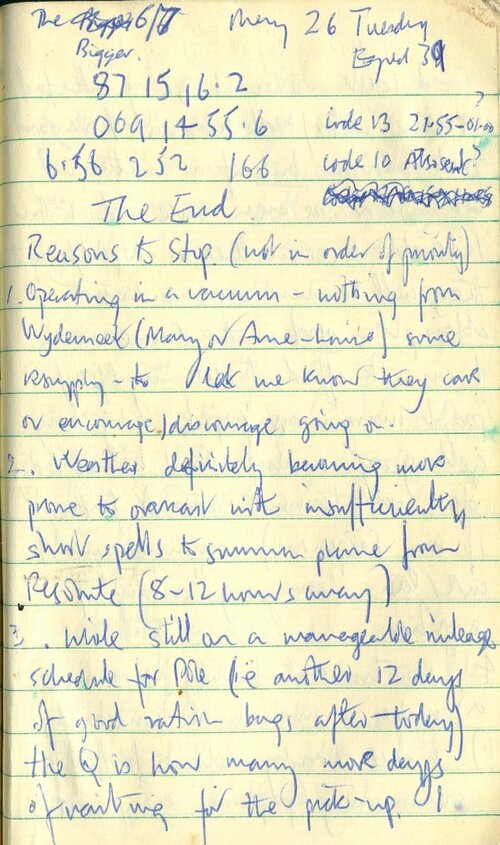 The 6/7 May 26 Tuesday
Bigger. Expd 31
87 15 16.2
069 14 55.6 code 13 21.55-01.00?
6.56 252 166 code 10 ?
The End.
Reasons to Stop. (not in order of priority)
1. Operating in a vacuum - nothing from
(Mary or Anne-Louise) since
resupply - to let me know they care
or encourage/discourage going on.
2. Weather definitely becoming more
prone to overcast with insufficiently
short spells to summon plane from
Resolute (8-12 hours away)
3. While still on a manageable mileage
schedule for Pole (ie another 12 days
of good ration bags after today)
the Q is how many more days
of waiting for the pick-up. 1